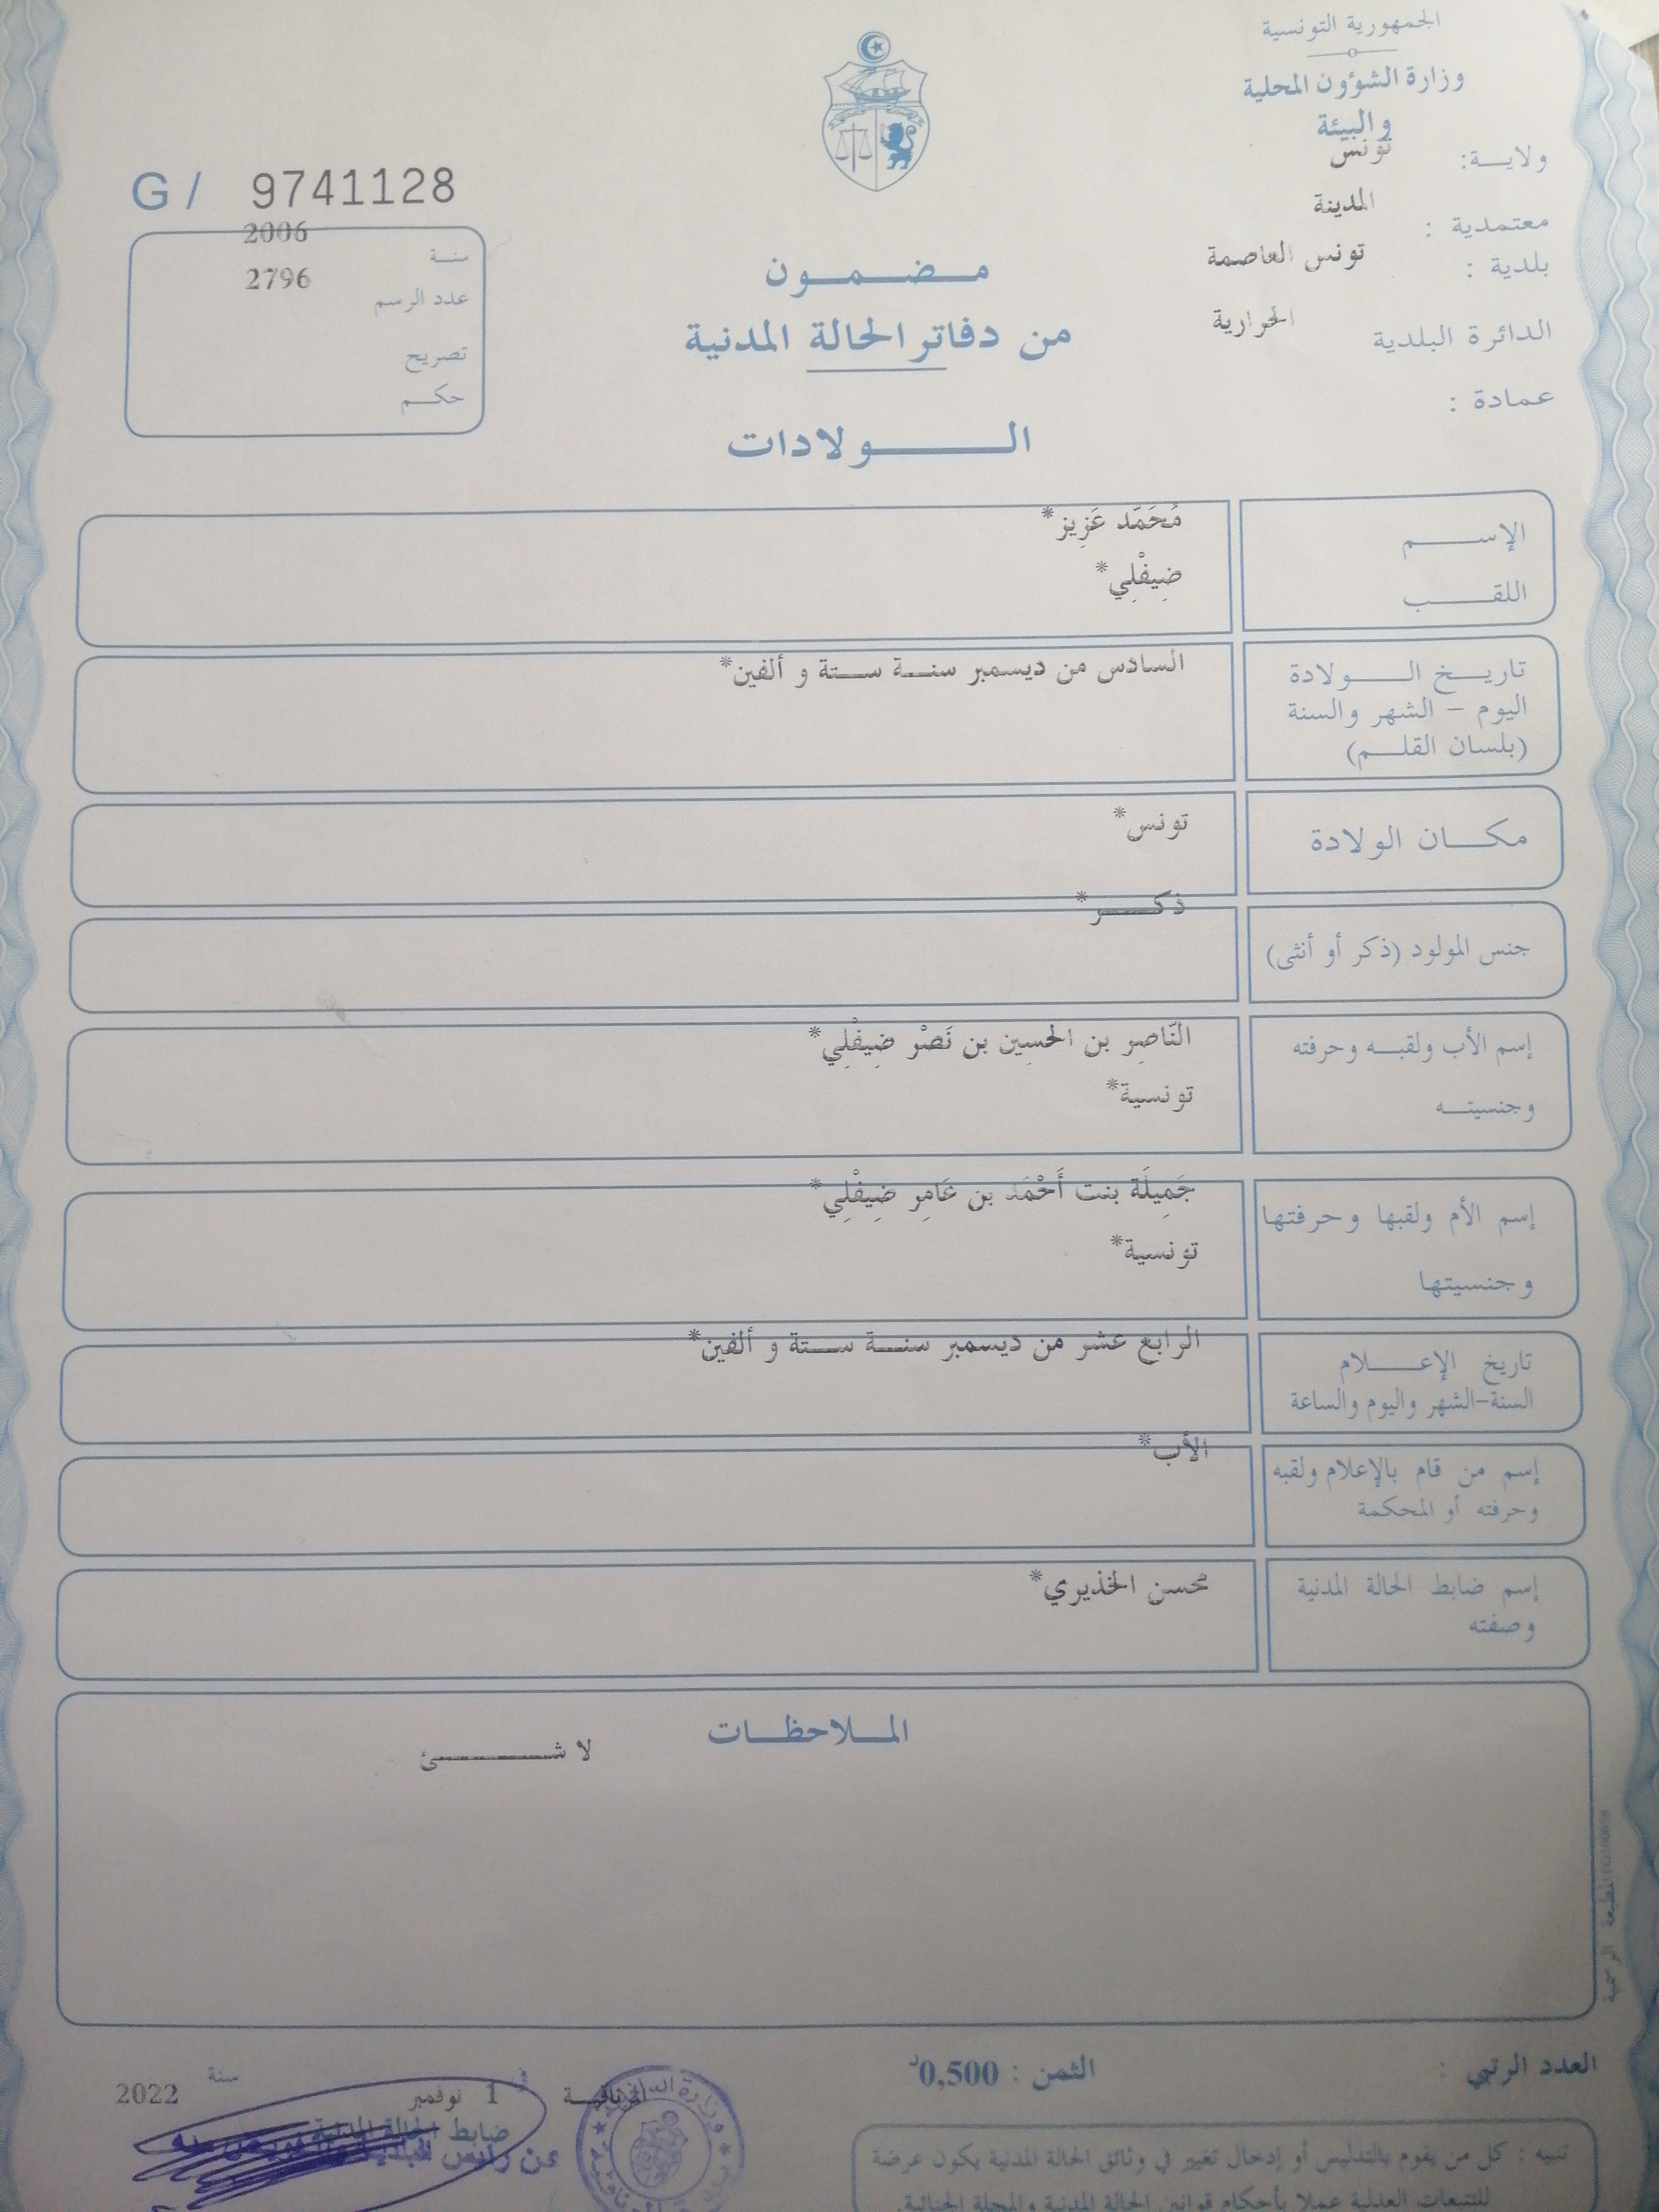 الجمهورية التونسية
وزارة الشؤون المحلية
والبيئة
ولاية: تونس
معتمدية : المدينة
بلدية : تونس العاصمة
الدائرة البلدية الحرارية
عمادة :
G / 9741128
سنة 2006
عدد الرسم 2796
تصريح
حكم
مضمون
من دفاتر الحالة المدنية
الولادات
الإسم مُحَمَّد عَزِيز*
اللقب ضِيفْلِي*
تاريخ الولادة السادس من ديسمبر سنة ستة و ألفين*
اليوم - الشهر والسنة
(بلسان القلم)
مكان الولادة تونس*
جنس المولود (ذكر أو أنثى) ذكر*
إسم الأب ولقبه وحرفته النّاصِر بن الحسِين بن نَصْر ضِيفْلِي*
وجنسيته تونسية*
إسم الأم ولقبها وحرفتها جَمِيلَة بنت أَحْمَد بن عَامِر ضِيفْلِي*
وجنسيتها تونسية*
تاريخ الإعلام الرابع عشر من ديسمبر سنة ستة و ألفين*
السنة-الشهر واليوم والساعة
إسم من قام بالإعلام ولقبه الأب*
وحرفته أو المحكمة
إسم ضابط الحالة المدنية محسن الخذيري*
وصفته
الملاحظات
لا شئ
المطبعة الرسمية
العدد الرتبي :
الثمن : 0,500د
في 1 نوفمبر سنة 2022
ضابط الحالة المدنية
عن رئيس البلدية
تنبيه : كل من يقوم بالتدليس أو إدخال تغيير في وثائق الحالة المدنية يكون عرضة
للتتبعات العدلية عملا بأحكام قوانين الحالة المدنية والمجلة الجنائية.